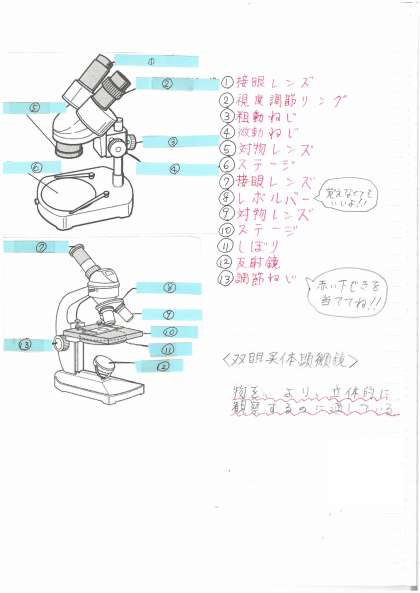 ①
②
⑤
③
④
⑥
⑦
⑧
⑨
⑩
⑬
⑪
⑫
①接眼レンズ
②視度調節リング
③粗動ねじ
④微動ねじ
⑤対物レンズ
⑥ステージ
⑦接眼レンズ
⑧レボルバー
⑨対物レンズ
⑩ステージ
⑪しぼり
⑫反射鏡
⑬調節ねじ
覚えなくて
いいよ!!
赤い下じきを
当ててね!!
〈双眼実体顕微鏡〉
物を、より、立体的に
観察するのに適している。